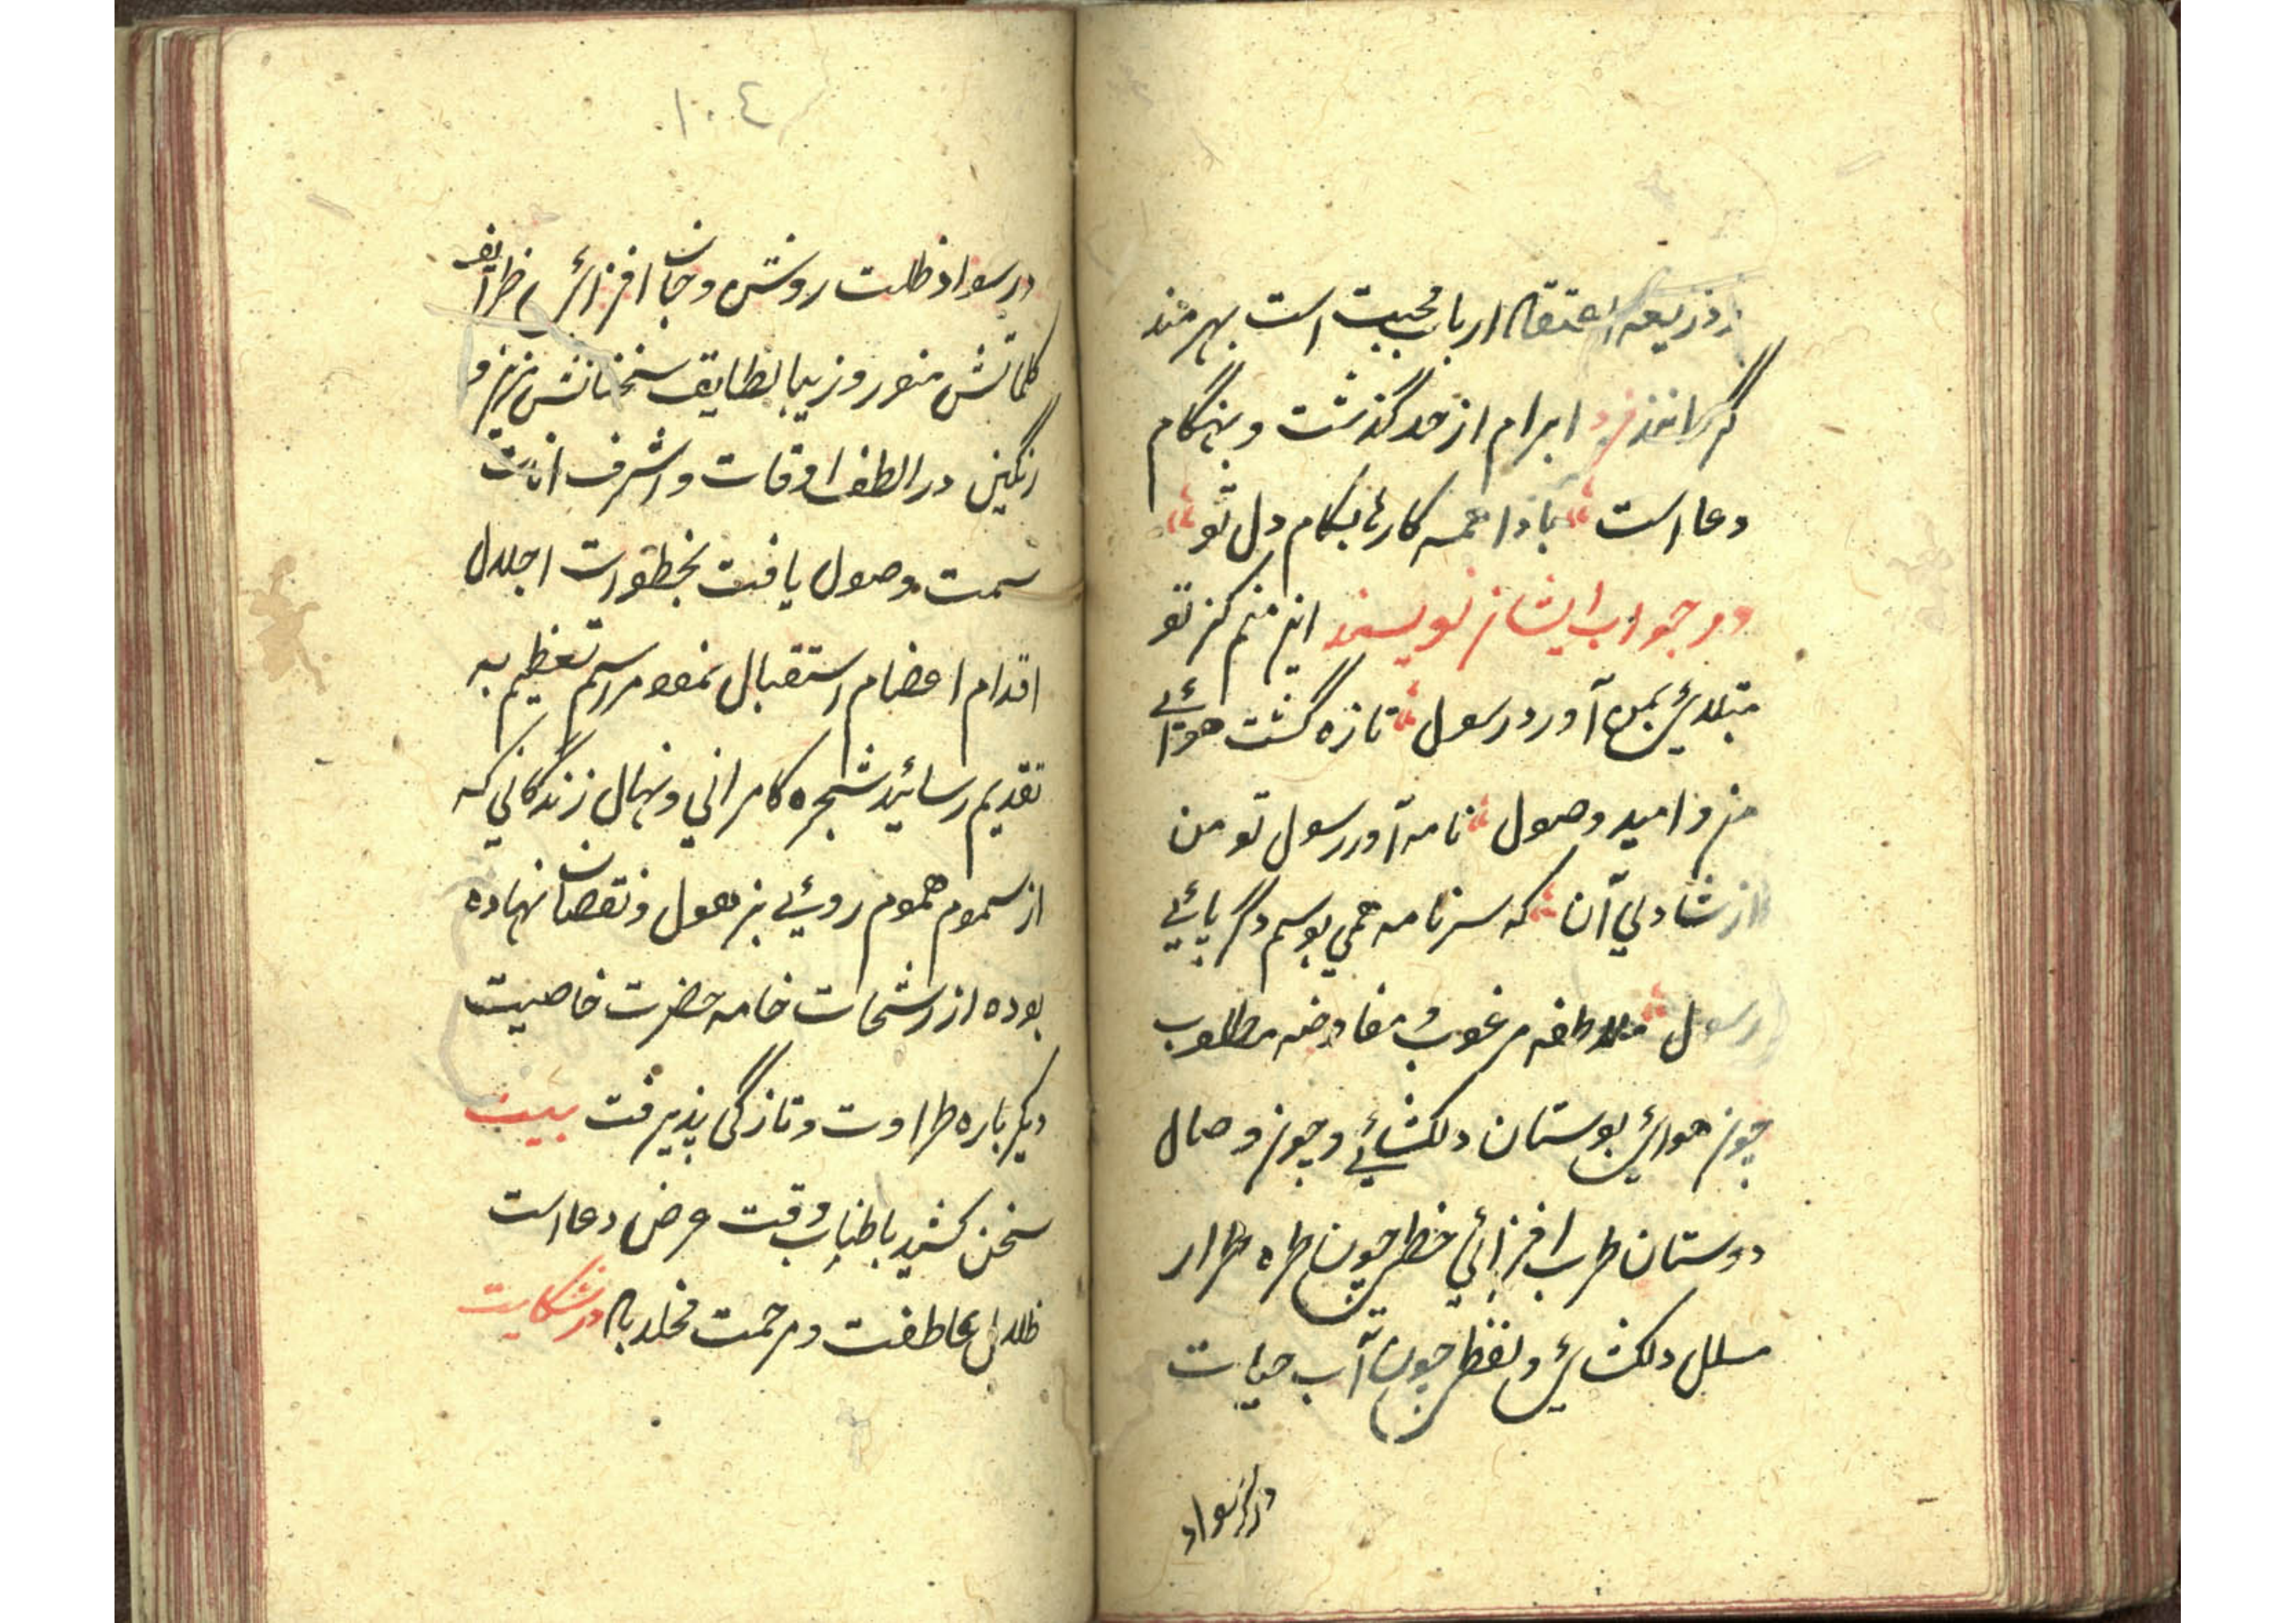 از ذریعه اعتقاد ارباب محبت است بهرمند
گردانند فرد ابرام از حد گذشت و بهنگام
دعا است بادا همه کارها بکام دل تو
در جواب ایشان نویسند این منم کز تو
بمن آورد رسول تازه گشت هوائے
من و امید وصول نامه آورد رسول تو من
از شادی آن که سر نامه همی بوسم و گر پائے
رسول ملاطفه مرغوب و مفاوضه مطلوب
چون هوای بوستان دلکشائے و چون وصال
دوستان طرب افزائي خطی چون طره طرار
مسلسل دلکشای و لفظی چون آب حیات
در سواد
١٠٤
در سواد ظلمت روشن و جان افزای ظرایف
کلماتش منور و زیبا لطایف سخنانش مزین و
رنگین در الطف اوقات و اشرف
سمت وصول یافت بخطوات اجلال
اقدام اعضام استقبال نموده مراسم تعظیم به
تقدیم رسائید شجره کامراني و نهال زندگاني که
از سموم هموم روئے بزبول و نقصان نهاده
بوده از رشحات خامه حضرت خاصیت
دیگر باره طراوت و تازگی پذیرفت بیت
سخن کشید باطناب وقت عرض دعا است
ظلال عاطفت و مرحمت مخلد باد در شکایت